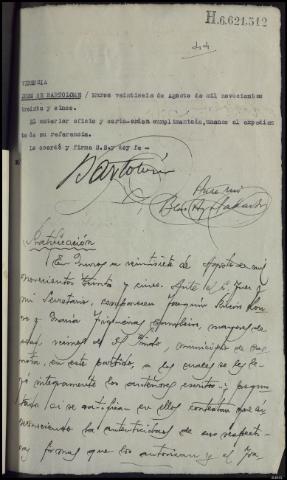 H.6.621.512
JUEZ SR BARTOLOME / Muros veintiseis de Agosto de mil novecientos
treinta y cinco.
El anterior oficio y carta-orden cumplimentada, unanse al expedien
te de su referencia.
Lo acordó y firma S.Sª doy fe-
Bartolomé
Ante mi
Ratificación
En Muros a veintisiete de Agosto de mil
novecientos treinta y cinco. Ante la S. Juez y
mi Secretario, comparecen Joaquín
y María mayores de
edad, vecinos de municipio de
en este partido, a los cuales se les le
yó integramente los anteriores escritos y pregun
tados si se ratifica en ellos contestan que si
reconociendo la autenticidad de sus respecti
vas firmas que los autorizan y el